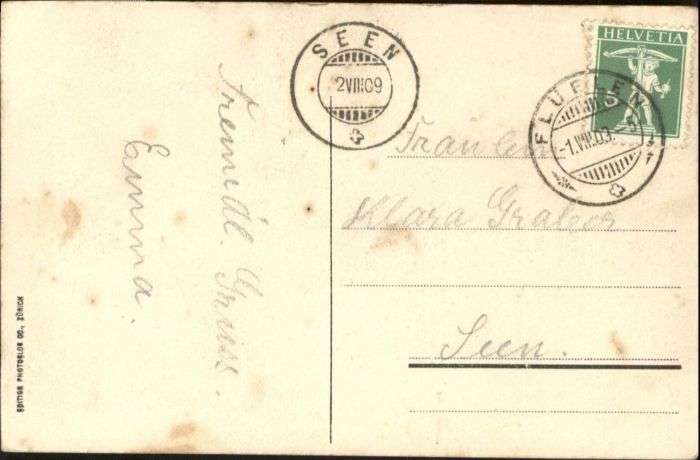 SEEN
2VIII09
HELVETIA
5
FLÜELEN
-1.VIII.09.
Fräulein
Klara Graber
Seen.
Freundl. Gruss.
Emma.
EDITION PHOTOGLOB CO., ZÜRICH